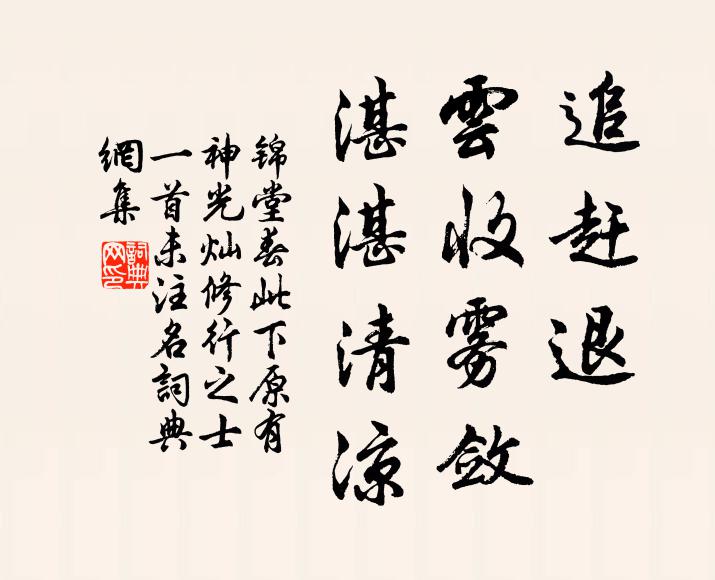 追赶退
雲收雾斂
湛湛清凉
锦堂春此下原有
神光灿修行之士
一首未注名詞典
網集
詞典
网印